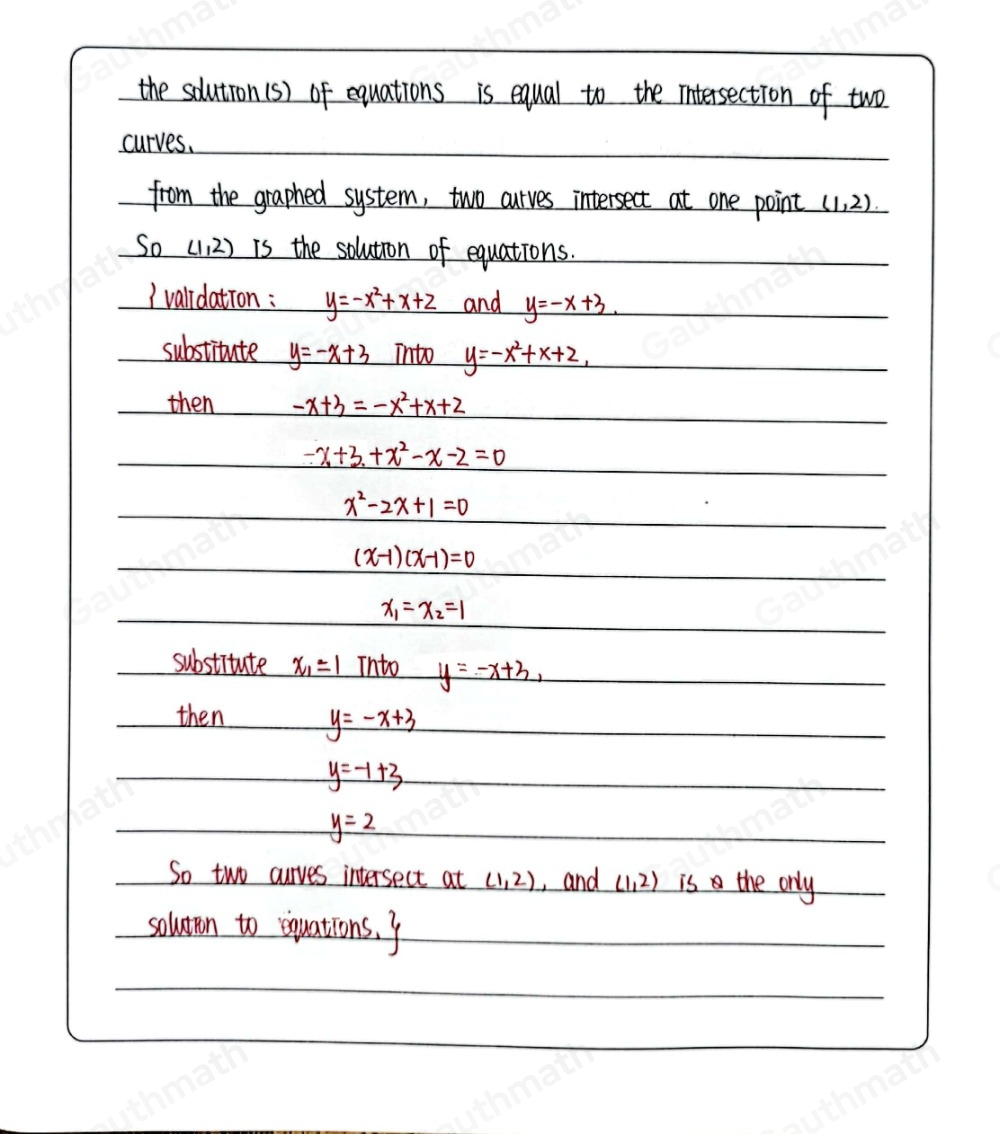 the solution(s) of equations is equal to the intersection of two
curves.
from the graphed system, two curves intersect at one point (1,2).
So (1,2) is the solution of equations.
{ validation: y=-x²+x+2 and y=-x+3.
substitute y=-x+3 into y=-x²+x+2,
then -x+3=-x²+x+2
-x+3+x²-x-2=0
x²-2x+1=0
(x-1)(x-1)=0
x₁=x₂=1
substitute x₁=1 into y=-x+3,
then y=-x+3
y=-1+3
y=2
So two curves intersect at (1,2), and (1,2) is the only
solution to equations. }
Gauthmath